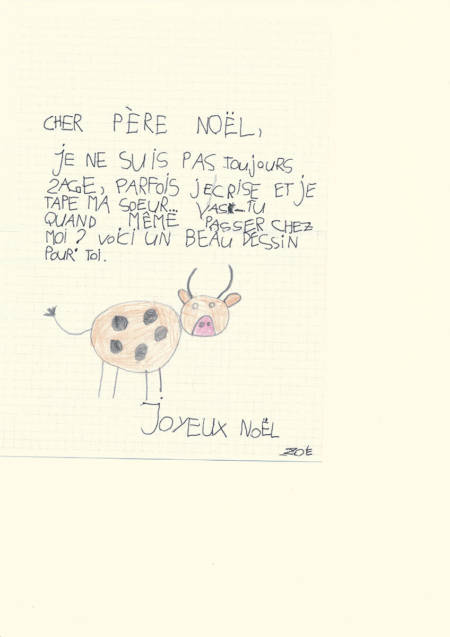 CHER PÈRE NOËL,
JE NE SUIS PAS TOUJOURS
2AGE, PARFOIS JECRISE ET JE
TAPE MA SOEUR... VAS-TU
QUAND MÊME PASSER CHEZ
MOI ? VOICI UN BEAU DESSIN
POUR TOI.
JOYEUX NOËL
ZOE